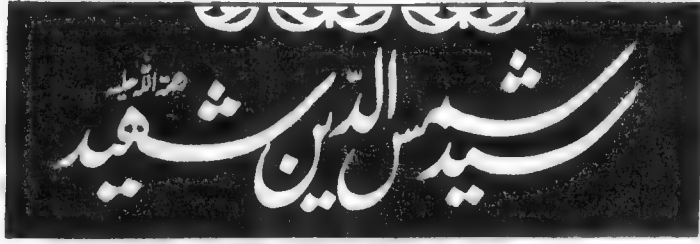 سید شمس الدین شہید رحمۃ اللہ علیہ